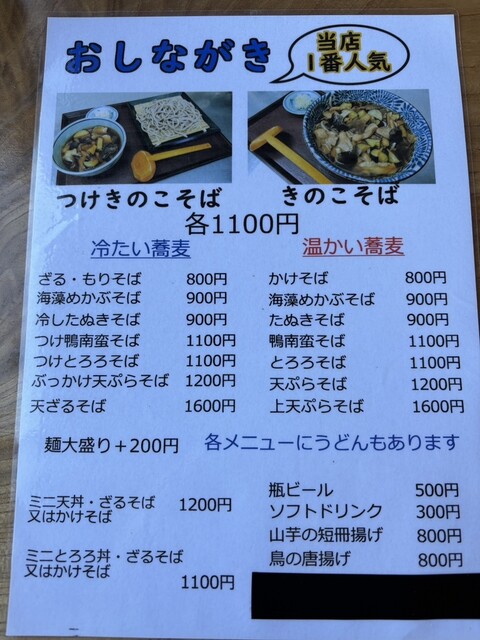 おしながき
当店
1番人気
つけきのこそば
きのこそば
各1100円
冷たい蕎麦
ざる・もりそば 800円
海藻めかぶそば 900円
冷したぬきそば 900円
つけ鴨南蛮そば 1100円
つけとろろそば 1100円
ぶっかけ天ぷらそば 1200円
天ざるそば 1600円
温かい蕎麦
かけそば 800円
海藻めかぶそば 900円
たぬきそば 900円
鴨南蛮そば 1100円
とろろそば 1100円
天ぷらそば 1200円
上天ぷらそば 1600円
麺大盛り+200円
各メニューにうどんもあります
ミニ天丼・ざるそば
又はかけそば 1200円
ミニとろろ丼・ざるそば
又はかけそば
1100円
瓶ビール 500円
ソフトドリンク 300円
山芋の短冊揚げ 800円
鳥の唐揚げ 800円